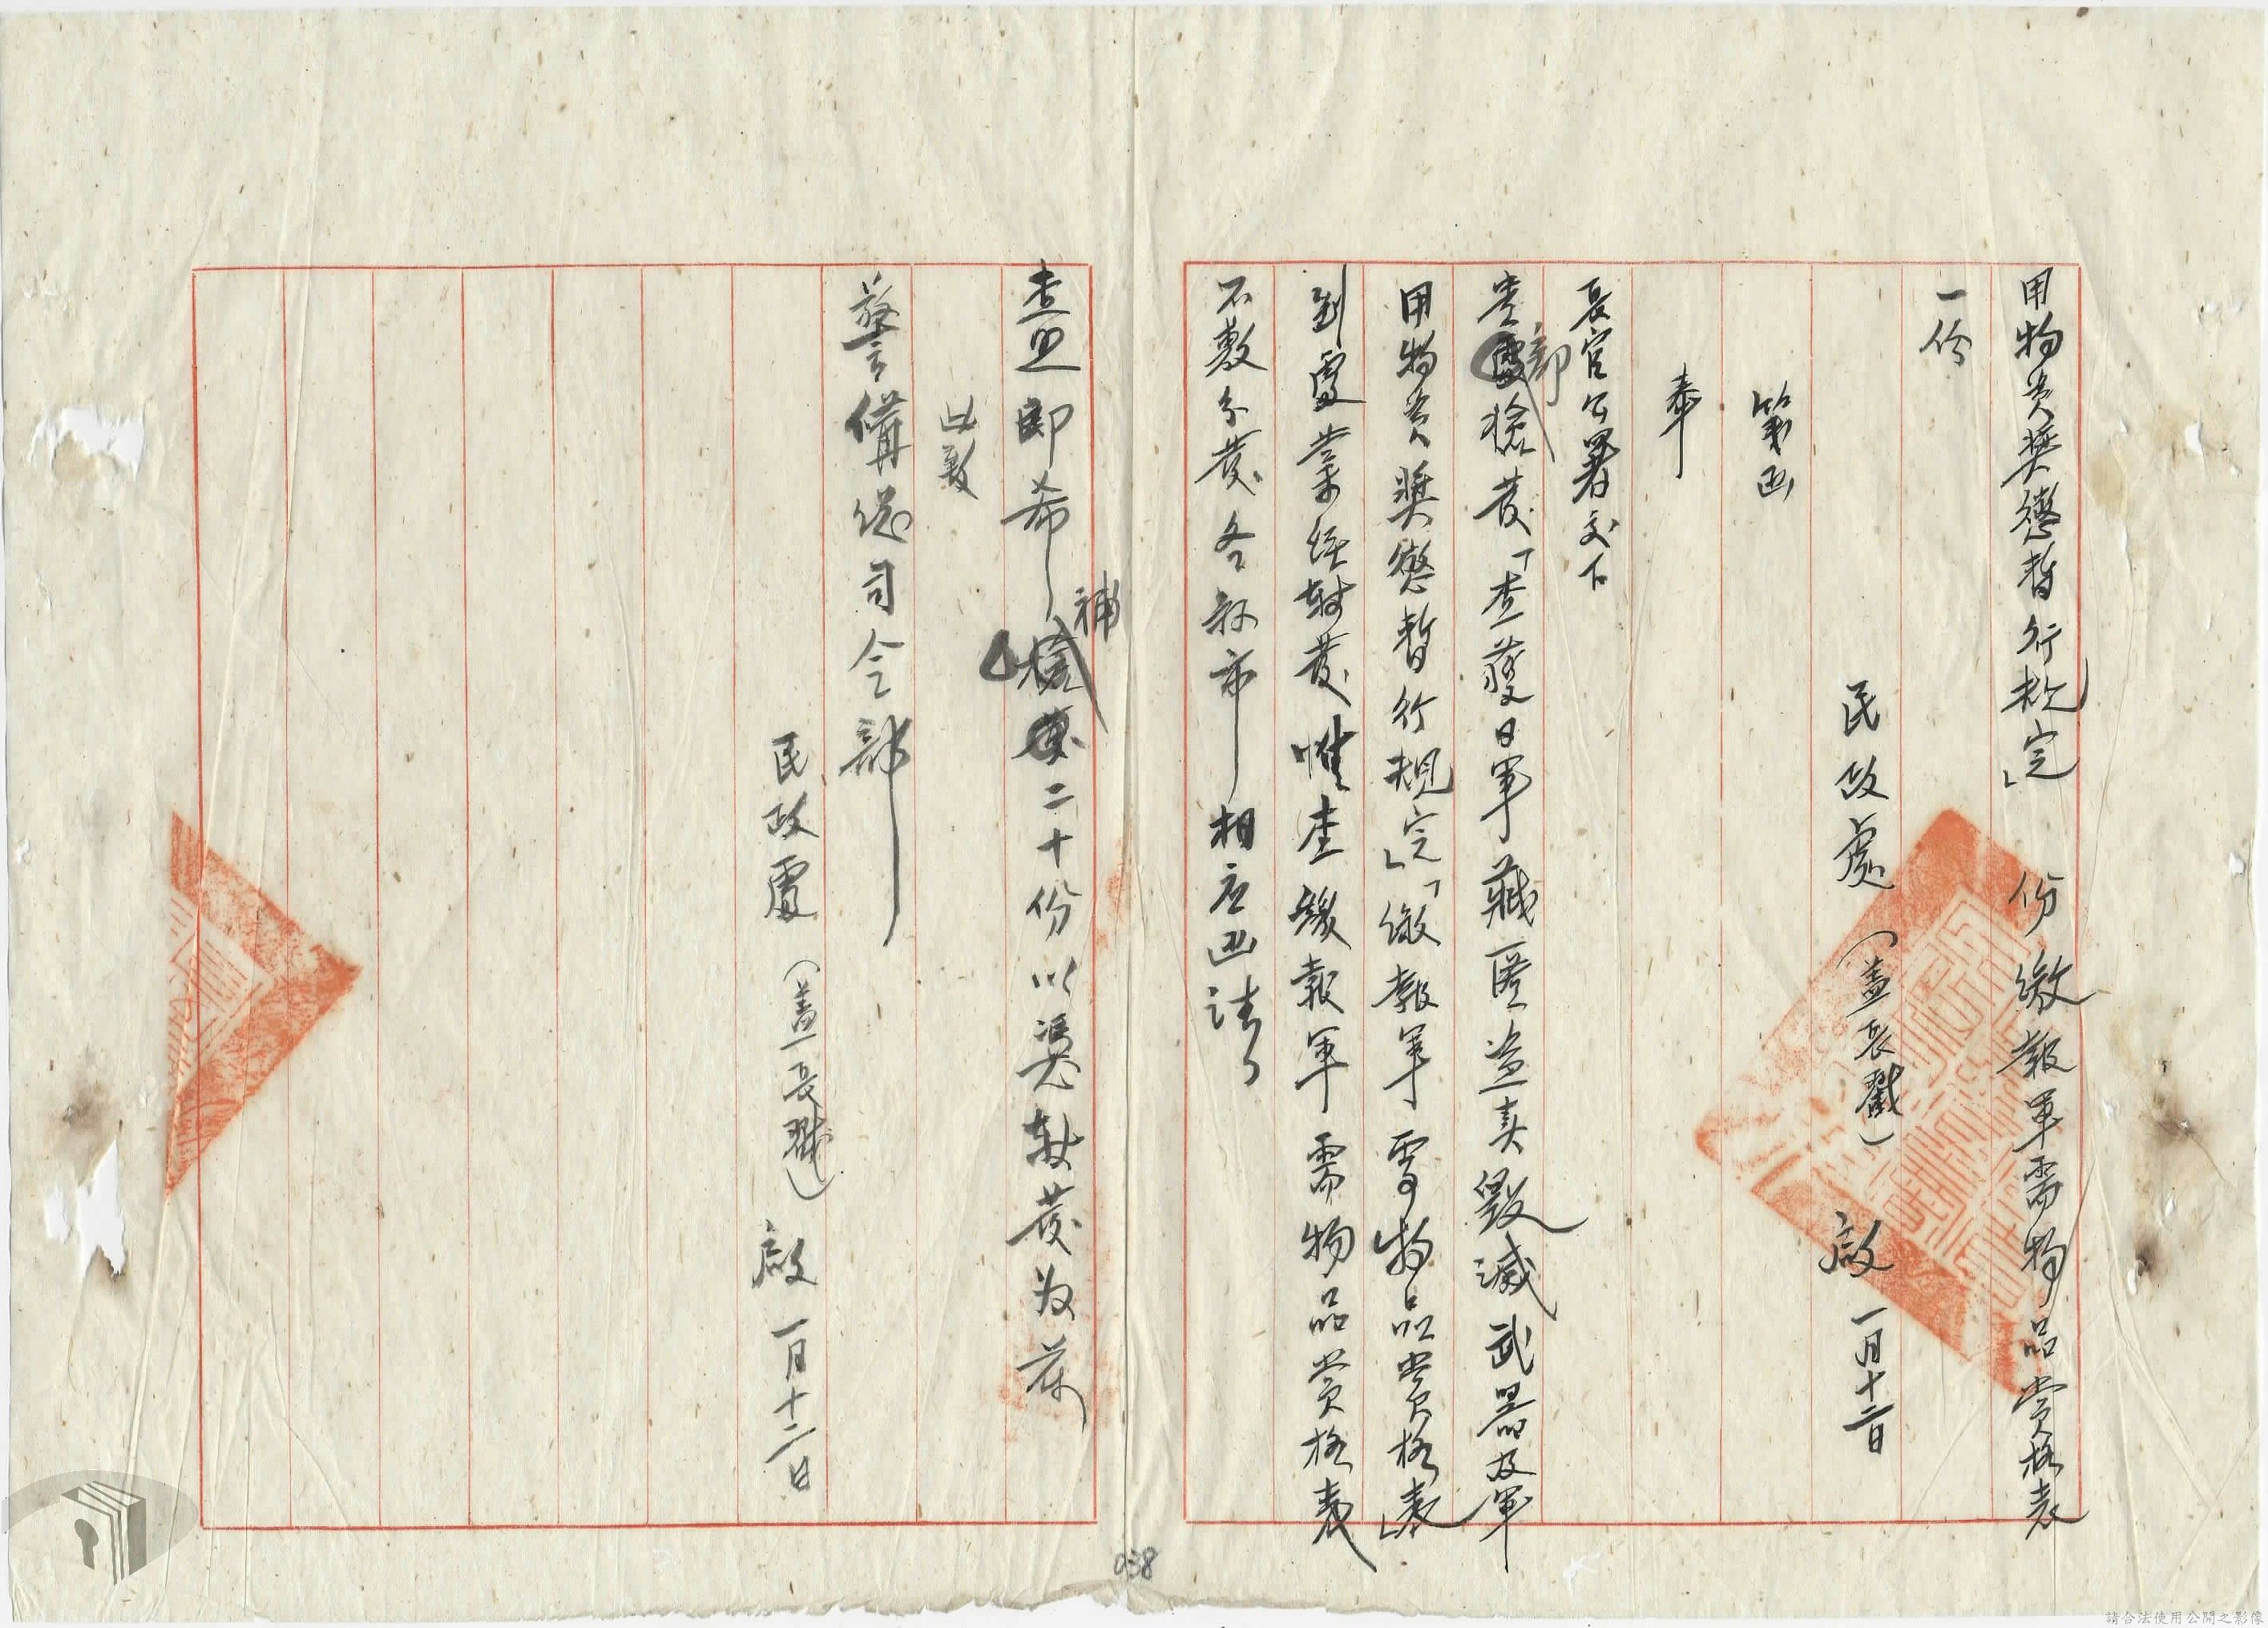 用物資獎懲暫行規定」　份繳報軍需物品賞格表
一份
民政處（蓋長戳）啟 一月十二日
箋函
奉
長官公署交下
貴部檢發「查獲日軍藏匿盜賣毀滅武器及軍
用物資獎懲暫行規定」「繳報軍需物品賞格表」
到處業經轉發惟查繳報軍需物品賞格表
不敷分發各縣市相應函請
查照即希補發二十份以憑轉發為荷
此致
警備總司令部
民政處（蓋長戳）啟 一月十二日
038
請合法使用公開之影像